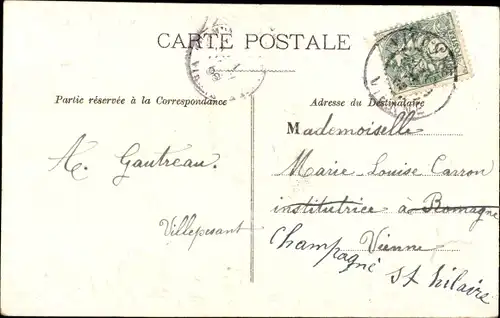 CARTE POSTALE
Partie réservée à la Correspondance
Adresse du Destinataire
A. Gautreau.
Villepesant
Mademoiselle
Marie-Louise Carron
institutrice à Romagne
Vienne
Champagné St Hilaire